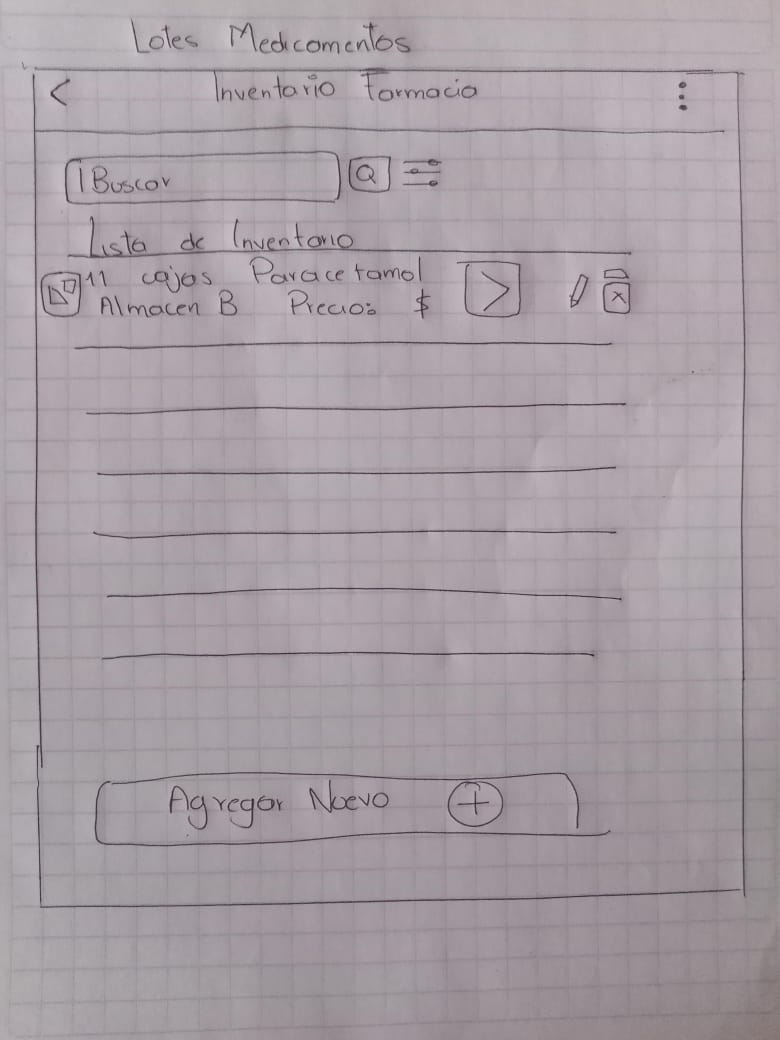 Lotes Medicamentos
Inventario Farmacia
Buscar
Lista de Inventario
11 cajas Paracetamol
Almacen B Precio: $
Agregar Nuevo